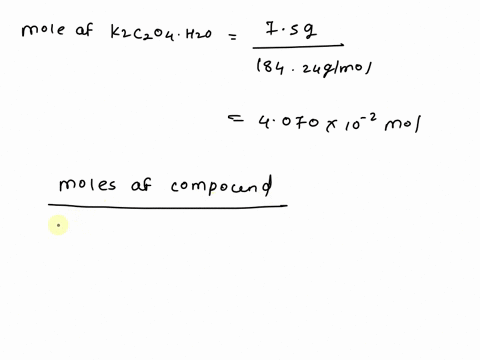 mole af K2C2O4.H2O = 7.5g / 184.24g/mol
= 4.070 × 10⁻² mol
moles af compound